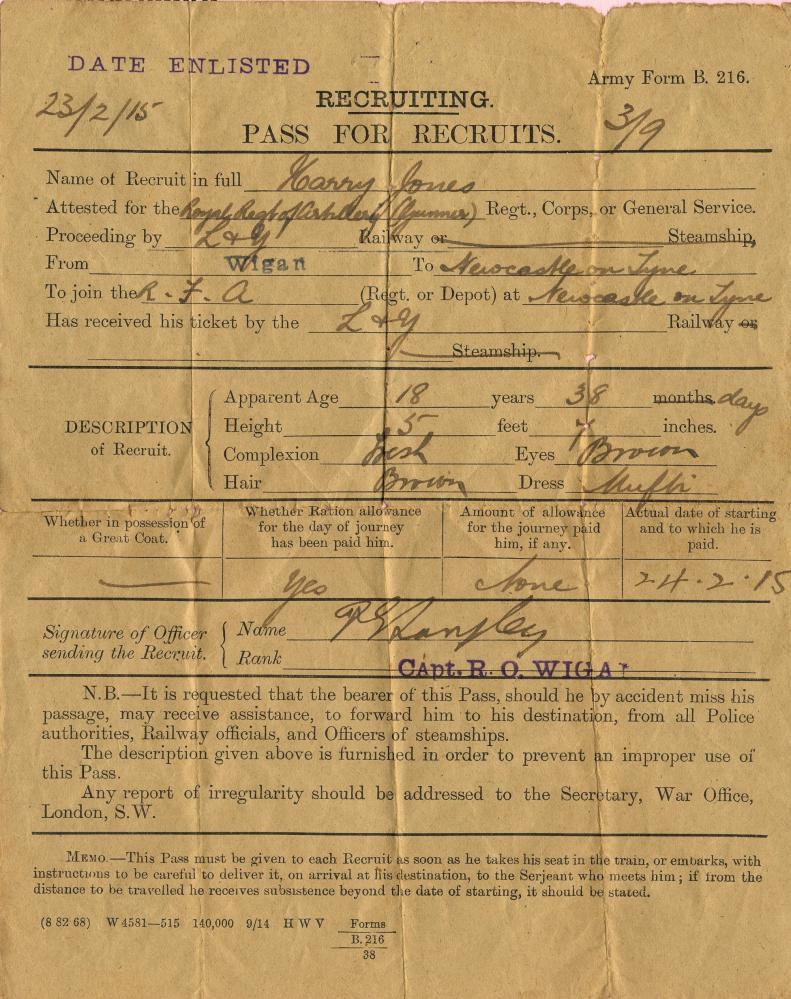 DATE ENLISTED
Army Form B. 216.
23/2/15
RECRUITING.
3/9
PASS FOR RECRUITS.
Name of Recruit in full Harry Jones
Attested for the Royal Regt of Artillery (Gunner) Regt., Corps, or General Service.
Proceeding by L & Y Railway or Steamship,
From Wigan To Newcastle on Tyne
To join the R. F. A (Regt. or Depot) at Newcastle on Tyne
Has received his ticket by the L & Y Railway or
Steamship.
DESCRIPTION of Recruit.
Apparent Age 18 years 38 months days
Height 5 feet 7 inches.
Complexion Fresh Eyes Brown
Hair Brown Dress Mufti
Whether in possession of a Great Coat.
Whether Ration allowance for the day of journey has been paid him.
Amount of allowance for the journey paid him, if any.
Actual date of starting and to which he is paid.
Yes None 24.2.15
Signature of Officer sending the Recruit.
Name Langley
Rank Capt. R. O. WIGA
N.B.—It is requested that the bearer of this Pass, should he by accident miss his
passage, may receive assistance, to forward him to his destination, from all Police
authorities, Railway officials, and Officers of steamships.
The description given above is furnished in order to prevent an improper use of
this Pass.
Any report of irregularity should be addressed to the Secretary, War Office,
London, S.W.
MEMO.—This Pass must be given to each Recruit as soon as he takes his seat in the train, or embarks, with
instructions to be careful to deliver it, on arrival at his destination, to the Serjeant who meets him; if from the
distance to be travelled he receives subsistence beyond the date of starting, it should be stated.
(8 82 68) W 4581—515 140,000 9/14 H W V Forms
B. 216
38